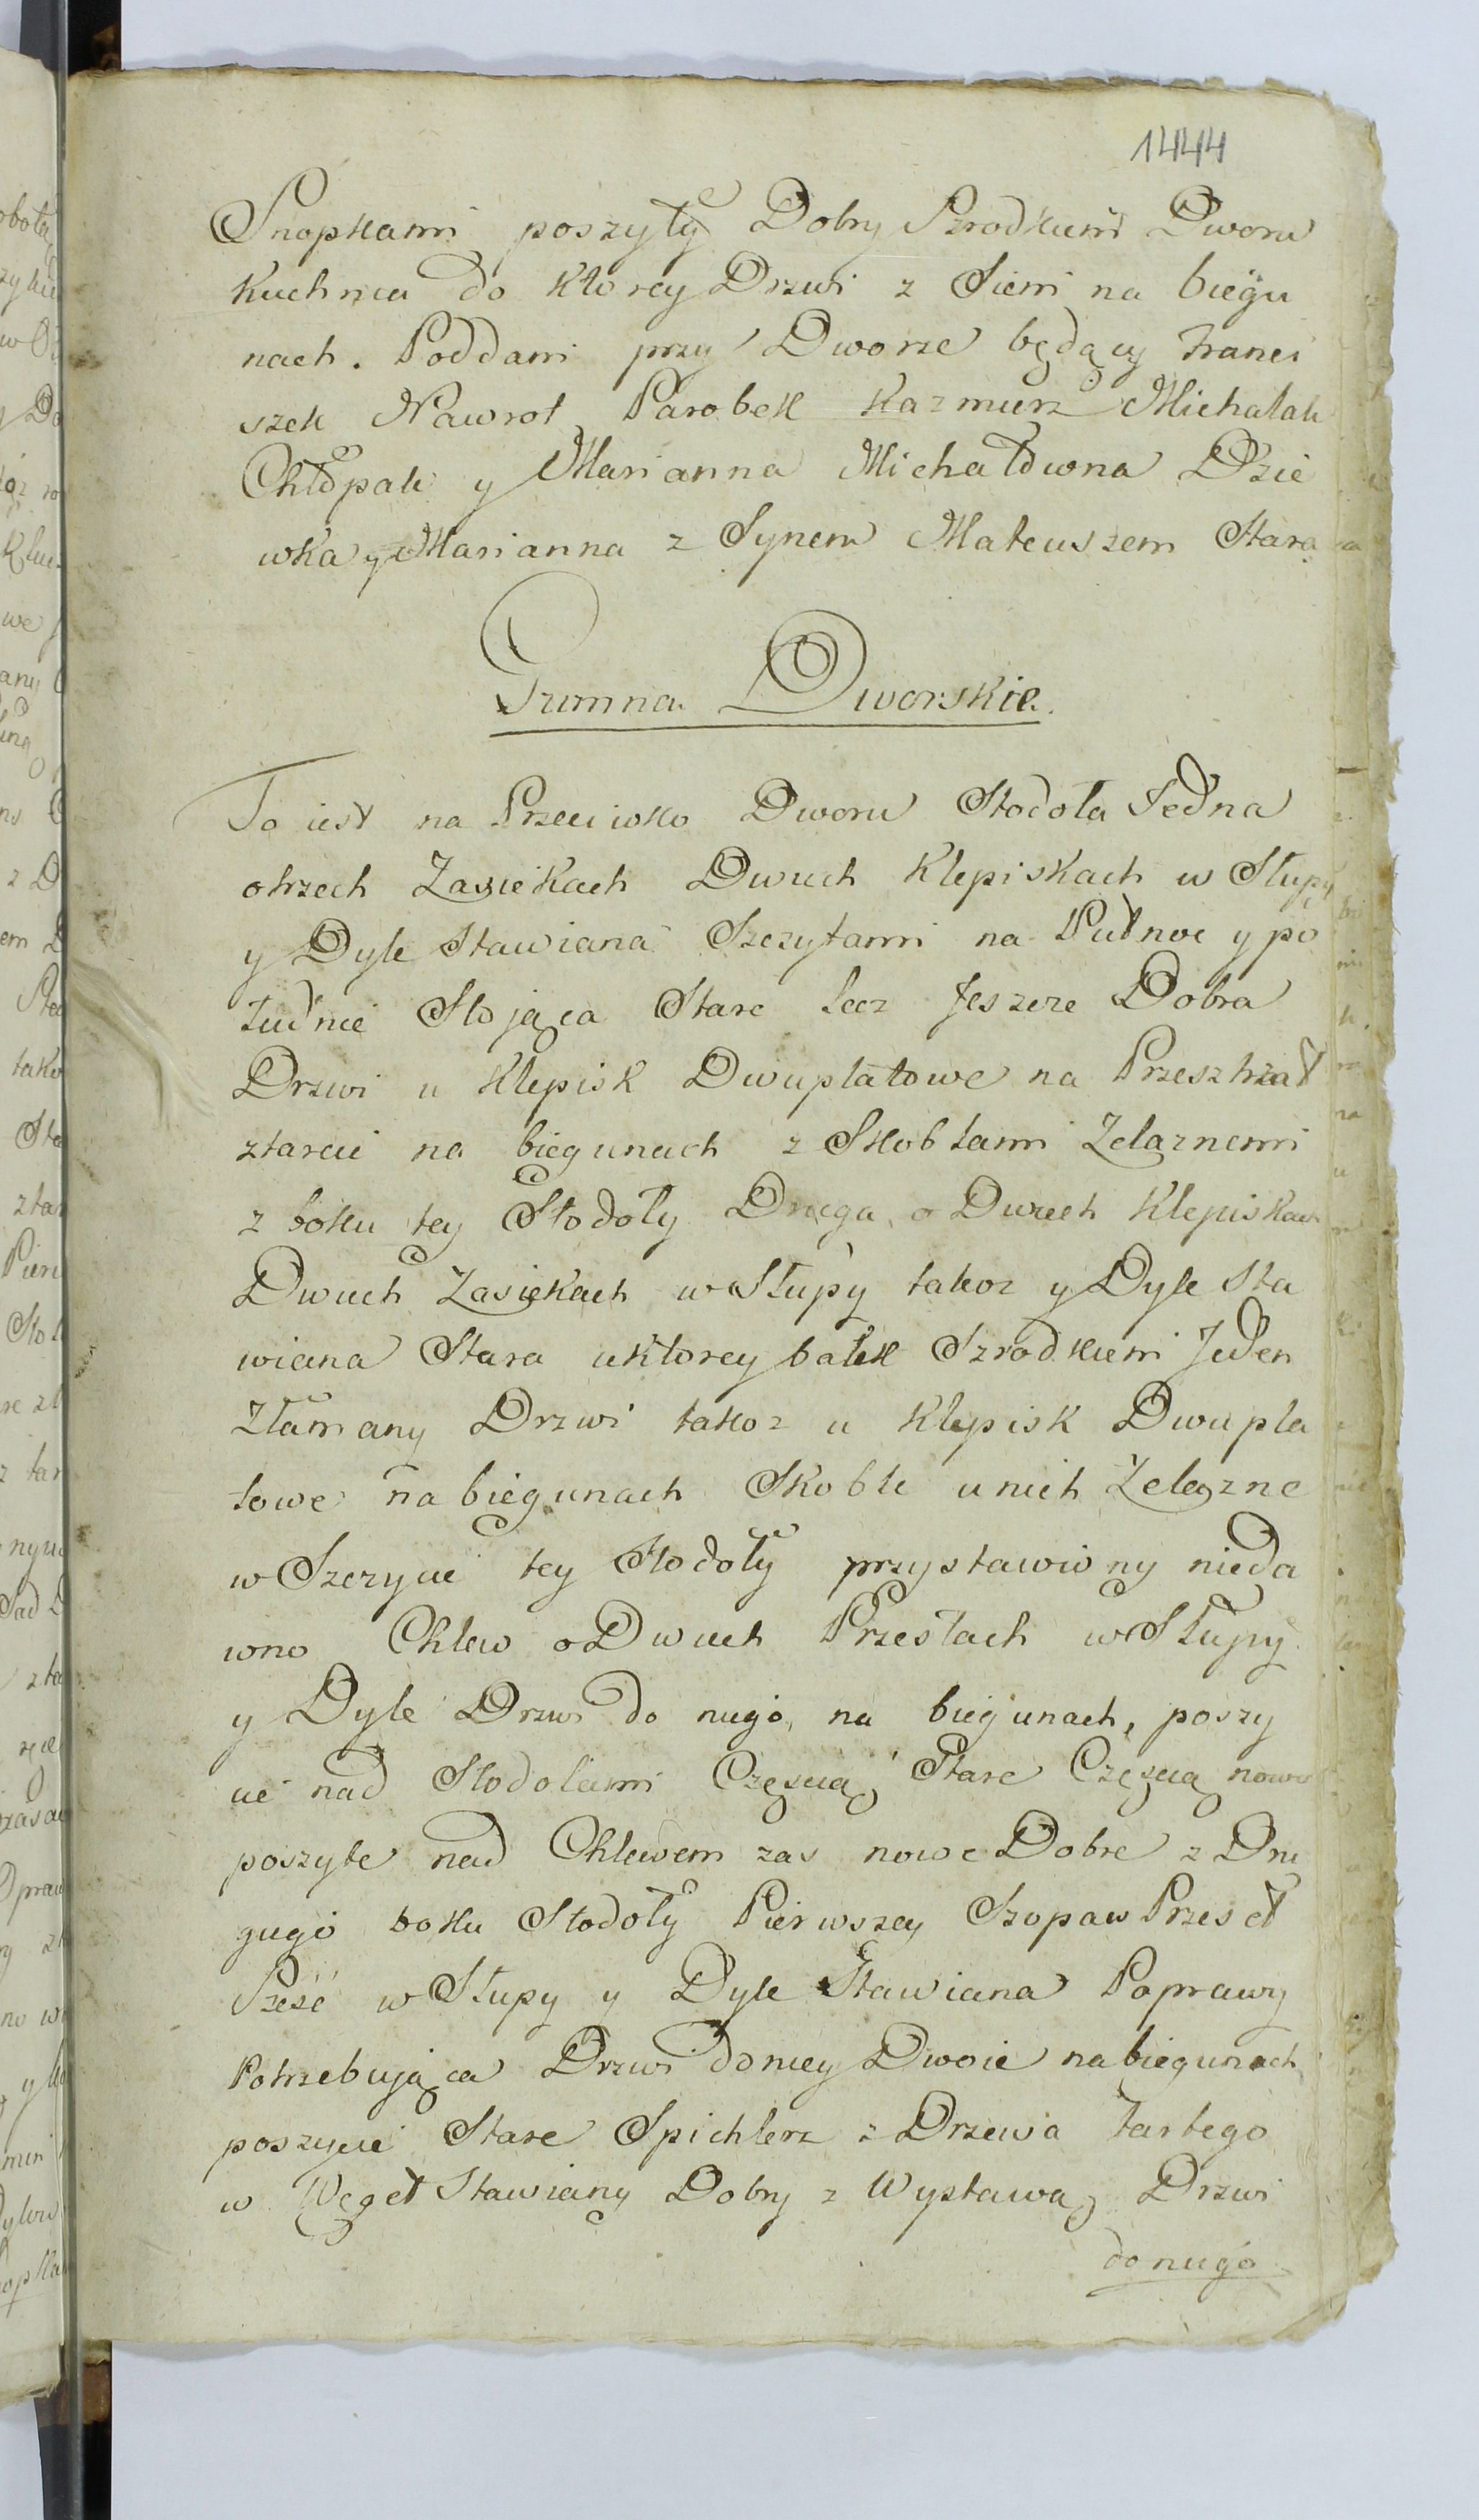 1444
Snopkami poszyty Dobry Szrodkiem Dworu
Kuchnia do ktorey Drzwi z Sieni na biegu
nach. Poddani przy Dworze będący Franci
szek Nawrot Parobek Kazmierz Michalak
Chłopak y Marianna Michałowna Dzie
wka y Marianna z Synem Mateuszem Stara
Gumna Dworskie.
To iest na Przeciwko Dworu Stodoła Jedna
otrzech Zasiekach Dwuch Klepiskach w Słupy
y Dyle Stawiana Szczytami na Pułnoc y po
łudnie Stojąca Stare lecz Jeszcze Dobra
Drzwi u Klepisk Dwupłatowe na Przestrzał
ztarcic na biegunach z Skoblami Zelaznemi
z boku tey Stodoły Druga o Dwuch Klepiskach
Dwuch Zasiekach w Słupy takoz y Dyle Sta
wiana Stara uktorey balek Szrodkiem Jeden
Złamany Drzwi takoz u Klepisk Dwupła
towe na biegunach Skoble unich Zelazne
w Szczycie tey Stodoły przystawiony nieda
wno Chlew o Dwuch Przesłach w Słupy
y Dyle Drzwi do niego na biegunach, poszy
cie nad Stodołami Częscią Stare Częscią nowo
poszyte nad Chlewem zas nowe Dobre z Dru
giego boku Stodoły Pierwszey Szopa w Przeseł
Szesć w Słupy y Dyle Stawiana Poprawy
Potrzebująca Drzwi do niey Dwoie na biegunach
poszycie Stare Spichlerz z Drzewa Tartego
w Węgeł Stawiany Dobry z Wystawą Drzwi
do niego